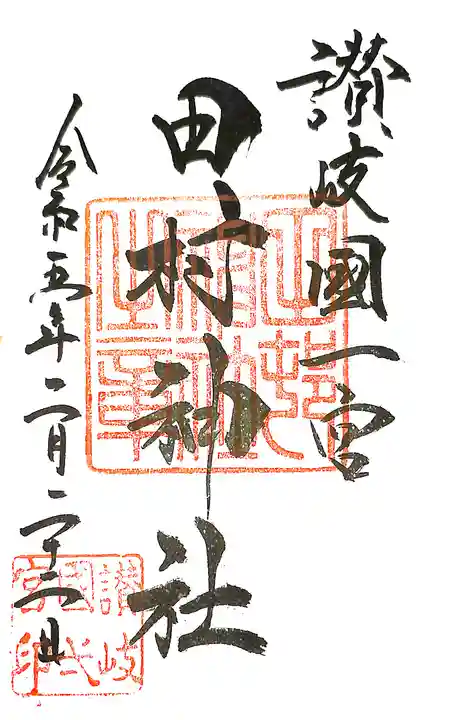 讚岐國一宮
田村神社
令和五年二月二十二日
讃岐
國弌
宮印